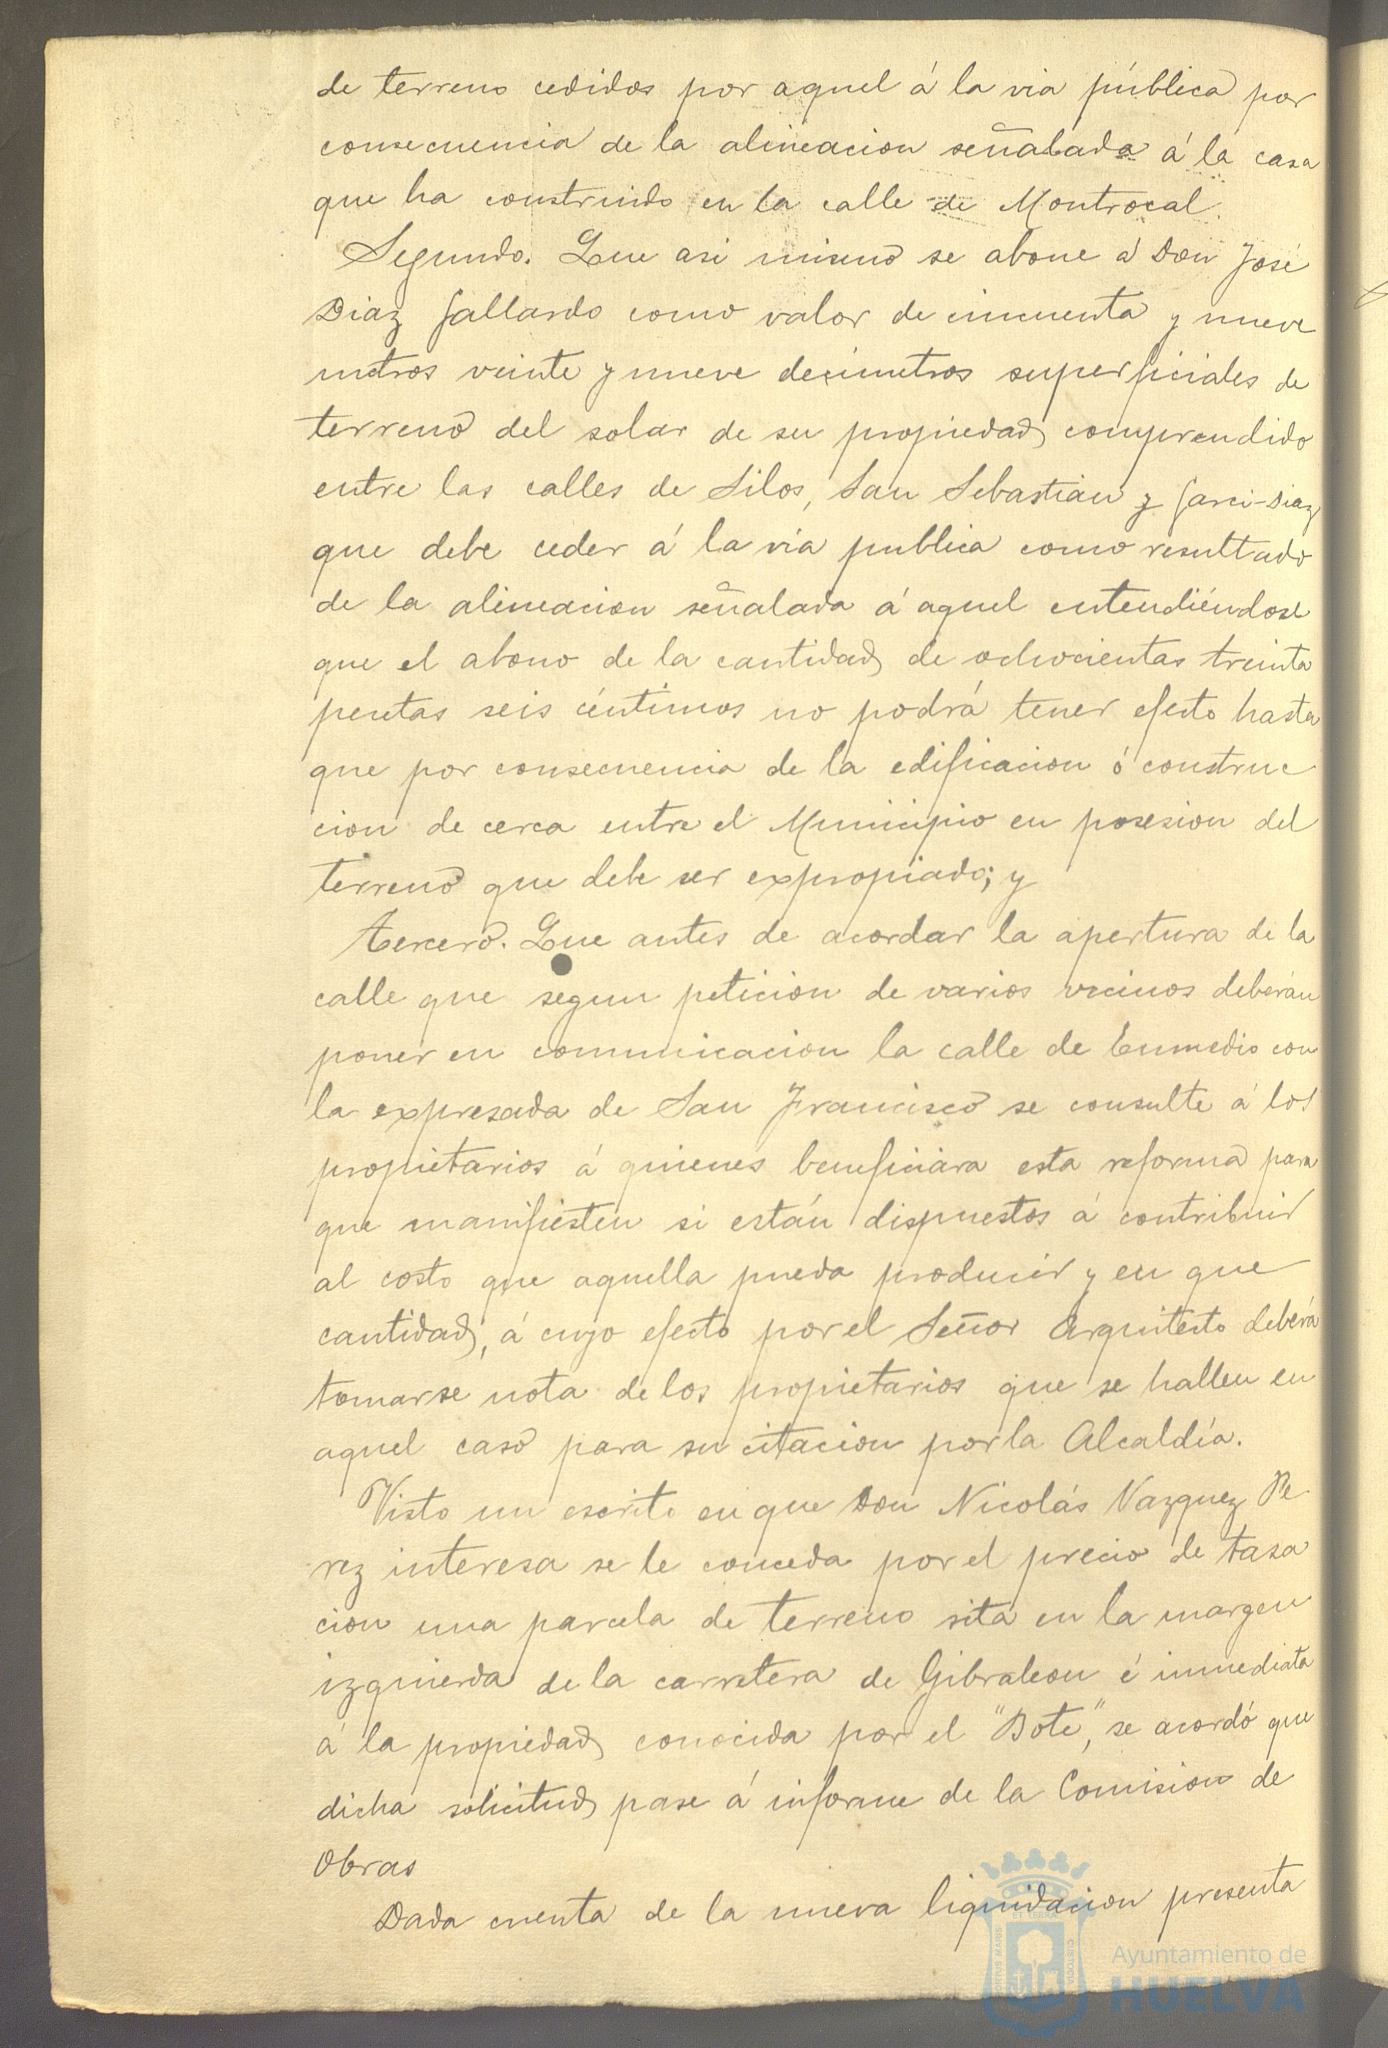 de terreno cedidos por aquel á la via pública por
consecuencia de la alineacion señalada á la casa
que ha construido en la calle de Montrocal.
Segundo. Que asi mismo se abone á Don José
Diaz Gallardo como valor de cincuenta y nueve
metros veinte y nueve decimetros superficiales de
terreno del solar de su propiedad comprendido
entre las calles de Silos, San Sebastian y Garci-Diaz
que debe ceder á la via publica como resultado
de la alineacion señalada á aquel entendiéndose
que el abono de la cantidad de ochocientas treinta
pesetas seis céntimos no podrá tener efecto hasta
que por consecuencia de la edificacion ó construc
cion de cerca entre el Municipio en posesion del
terreno que debe ser expropiado; y
Tercero. Que antes de acordar la apertura de la
calle que segun peticion de varios vecinos deberán
poner en comunicacion la calle de Enmedio con
la expresada de San Francisco se consulte á los
propietarios á quienes beneficiara esta reforma para
que manifiesten si están dispuestos á contribuir
al costo que aquella pueda producir y en que
cantidad, á cuyo efecto por el Señor Arquitecto deberá
tomarse nota de los propietarios que se hallen en
aquel caso para su citacion por la Alcaldía.
Visto un escrito en que Don Nicolás Vazquez Pe
rez interesa se le conceda por el precio de tasa
cion una parcela de terreno sita en la margen
izquierda de la carretera de Gibraleon é inmediata
á la propiedad conocida por el "Bote", se acordó que
dicha solicitud pase á informe de la Comision de
Obras
Dada cuenta de la nueva liquidacion presenta
Ayuntamiento de
HUELVA